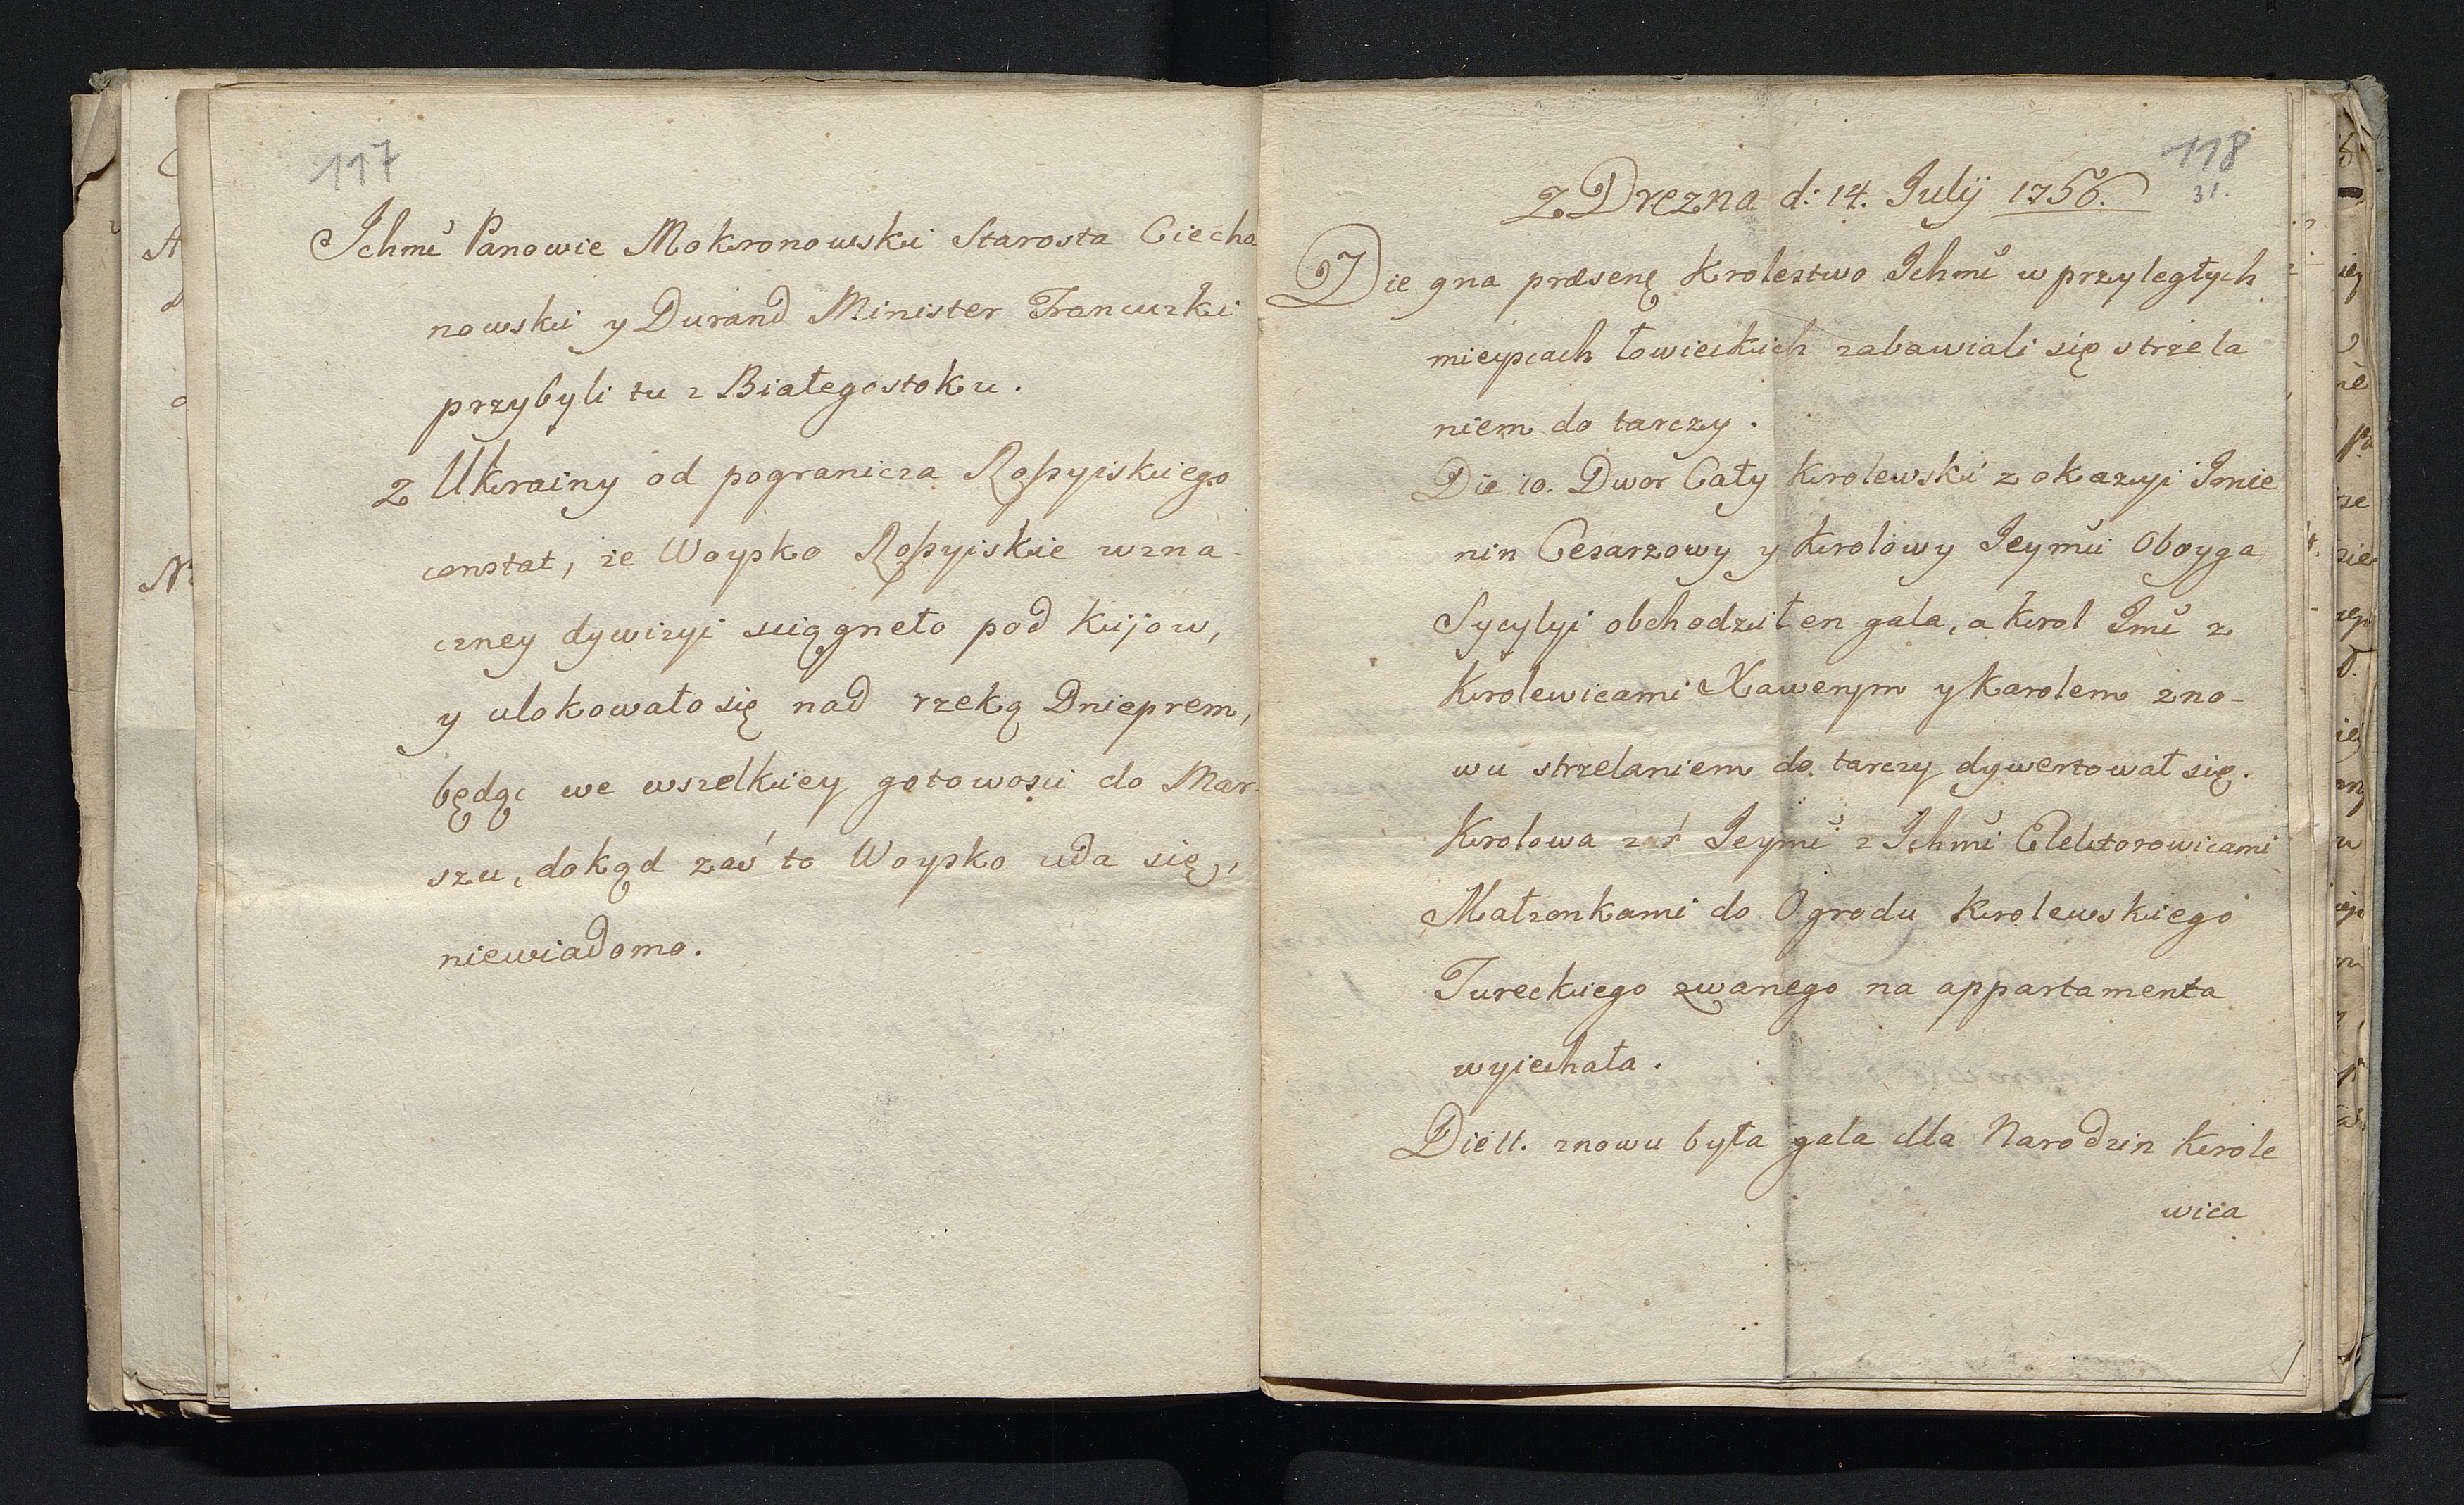 117
Jchmć Panowie Mokronowski Starosta Ciecha
nowski y Durand Minister Francuzki
przybyli tu z Białegostoku.
Z Ukrainy od pogranicza Roßyiskiego
constat, że Woysko Roßyiskie w zna-
czney dywizyi sciągneło pod Kijow,
y ulokowało się nad rzeką Dnieprem,
będąc we wszelkiey gotowosci do Mar-
szu, dokąd zaś to Woysko uda się,
niewiadomo.
118
31.
Z Drezna d: 14. Julÿ 1756.
Die 9na præsenę Krolestwo Jchmć w przyległych
mieyscach łowieckich zabawiali się strzela
niem do tarczy.
Die 10. Dwor Cały Krolewski z okazyi Jmie
nin Cesarzowy y Krolowy Jeymći Oboyga
Sycylyi obchodził en gala, a Krol Jmć z
Krolewicami Xawerym y Karolem zno-
wu strzelaniem do tarczy dywertował się.
Krolowa zaś Jeymć z Jchmć Elektorowicami
Małżonkami do Ogrodu Krolewskiego
Tureckiego zwanego na appartamenta
wyiechała.
Die 11. znowu była gala dla Narodzin Krole
wica